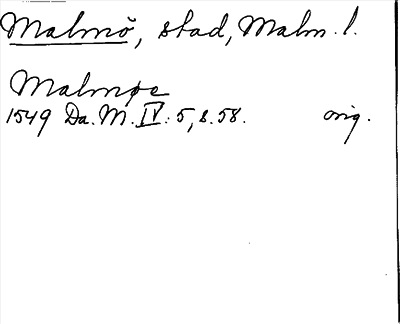 Malmö, stad, Malm. l.
Malmøe
1549 Da. M. IV: 5, s. 58. orig.